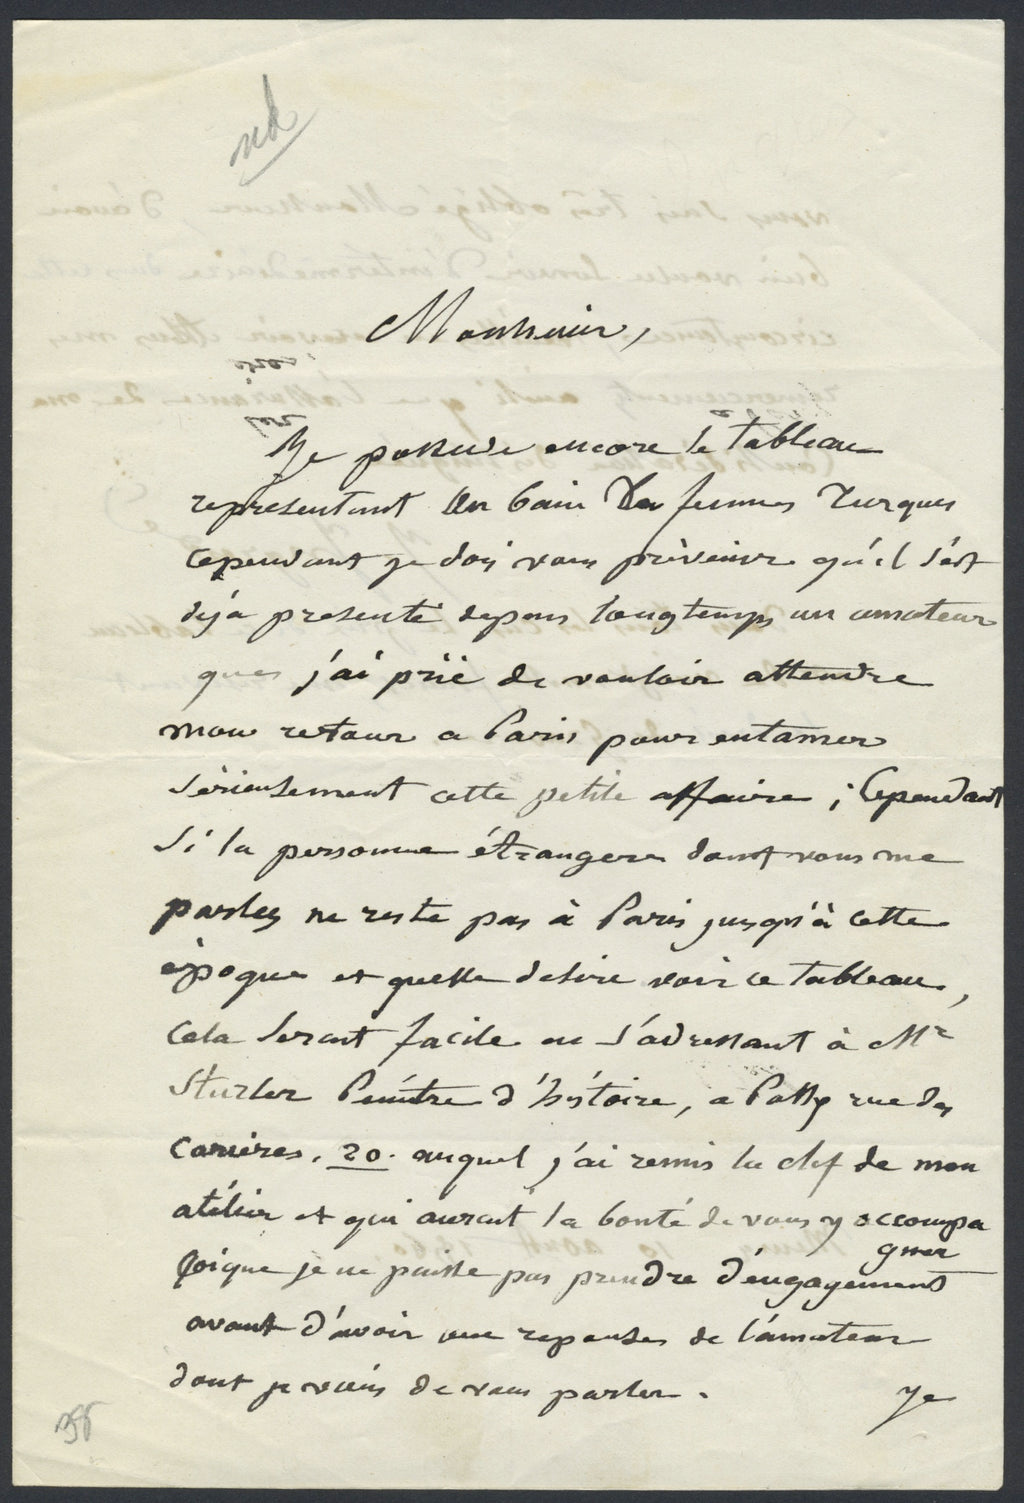 nd
Monsieur,
Je possede encore le tableau
representant un bain de femmes Turques
cependant je dois vous prèvenire qu'il s'est
dèja presenté depuis longtemps un amateur
que j'ai prié de vouloir attendre
mon retour a Paris pour entamer
sèrieusement cette petite affaire ; Cependant
si la personne étrangere dont vous me
parlez ne reste pas à Paris jusqu'à cette
èpoque et quelle desire voir ce tableau,
cela serait facile en s'adressant à Mr
Sturler Peintre d'histoire, a Passy rue des
Carrieres, 20. auquel j'ai remis la clef de mon
atélier et qui aurait la bonté de vous y accompa
gner
Qoique je ne puisse pas prendre d'engagement
avant d'avoir une reponse de l'amateur
dont je viens de vous parler.
Je